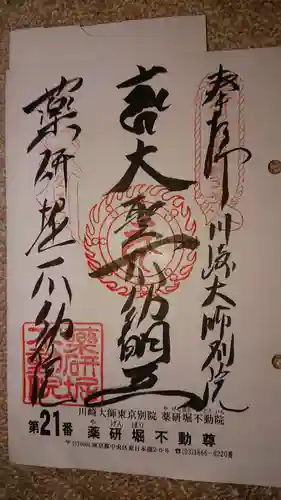 奉拝 川崎大師別院
大聖不動明王
薬研堀不動院
薬研堀不動院
川崎大師東京別院 薬研堀不動院
第21番 薬研堀不動尊
やげんぼり